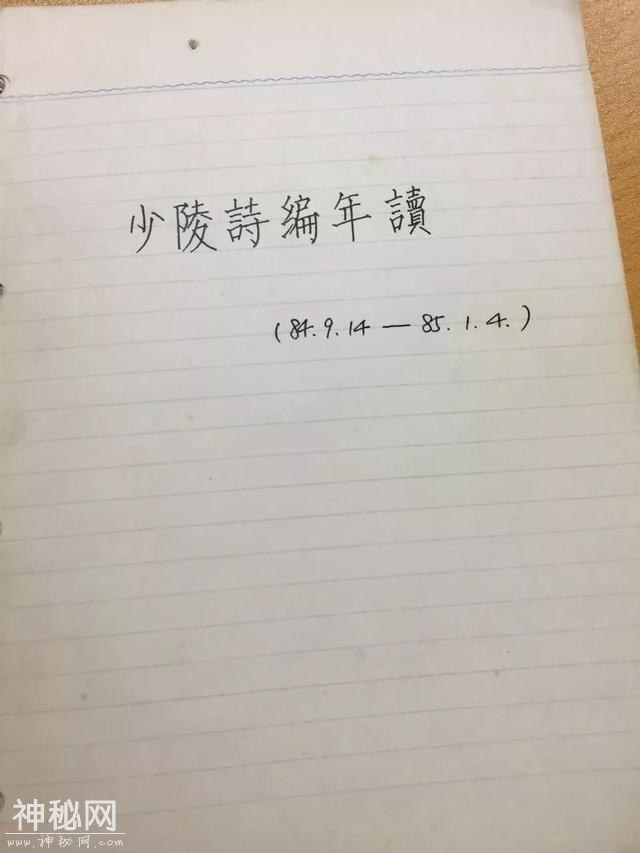 少陵詩編年讀
(84.9.14 — 85.1.4.)
神秘网
www.神秘网.com